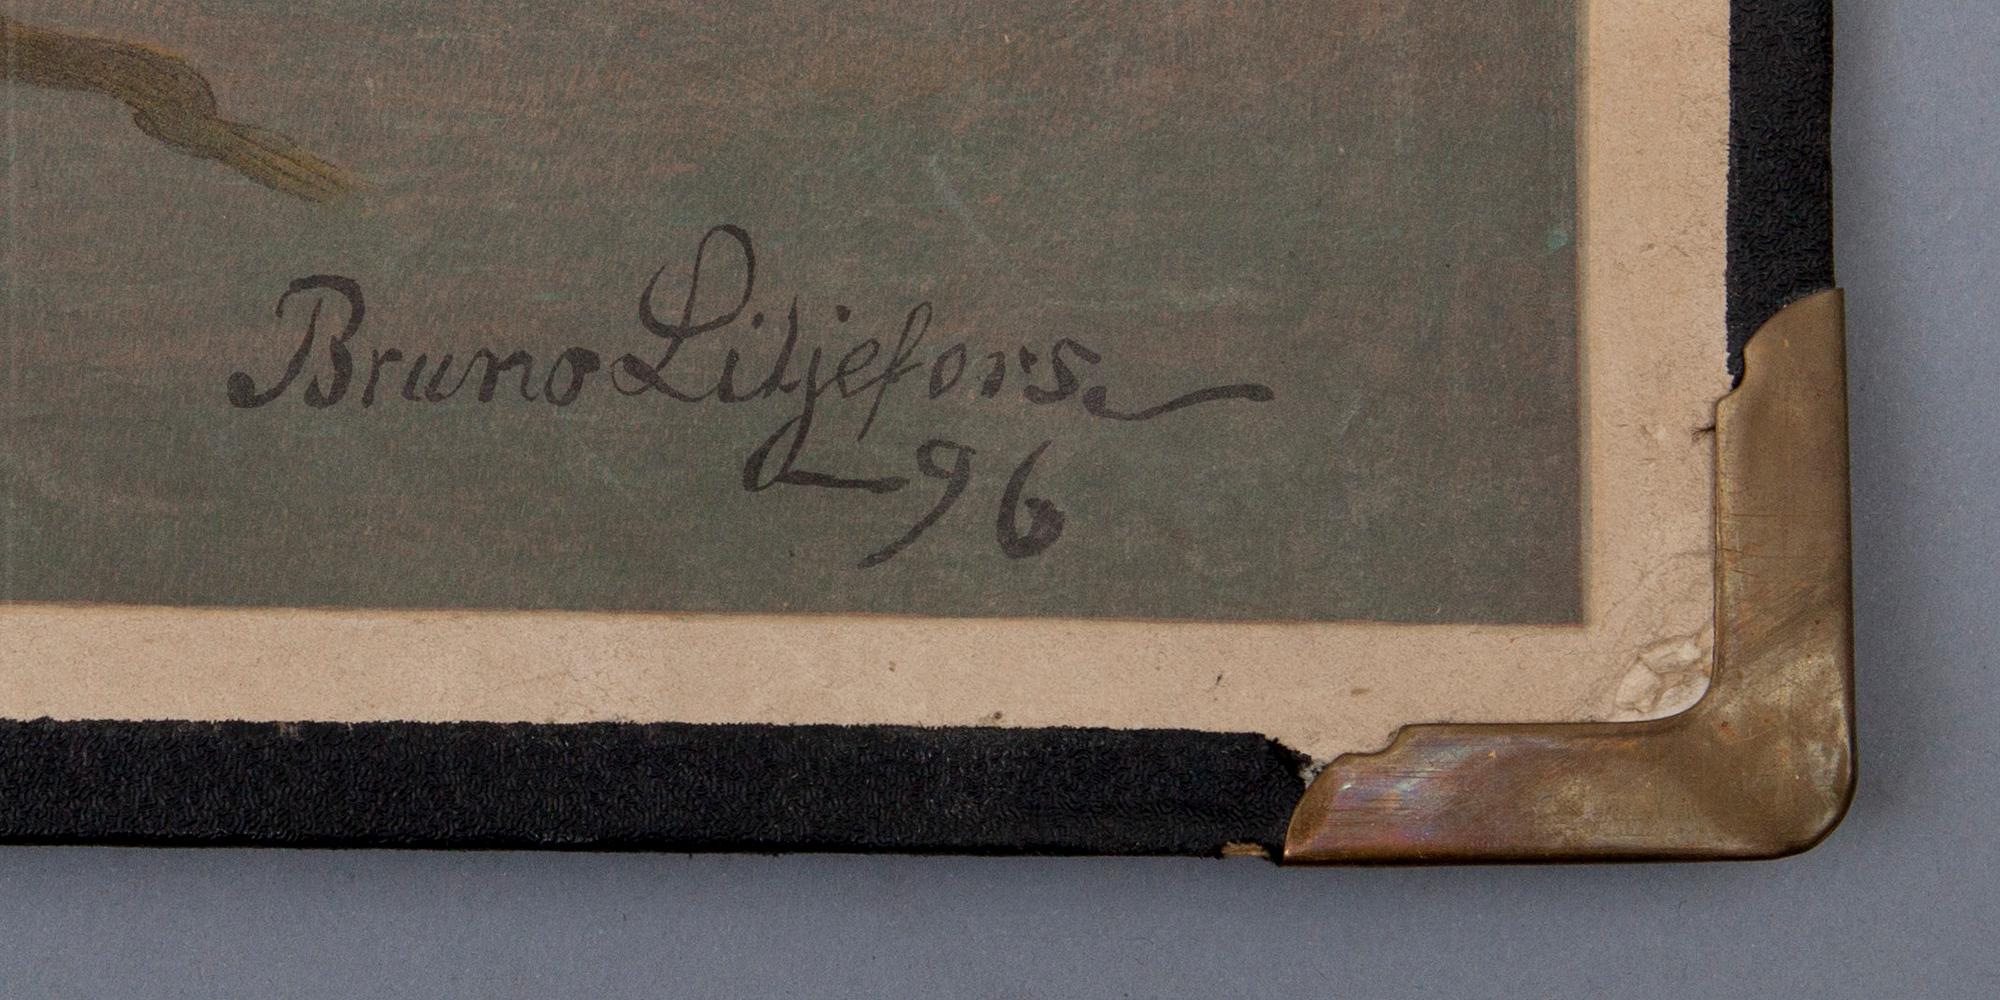 Bruno Liljefors
96